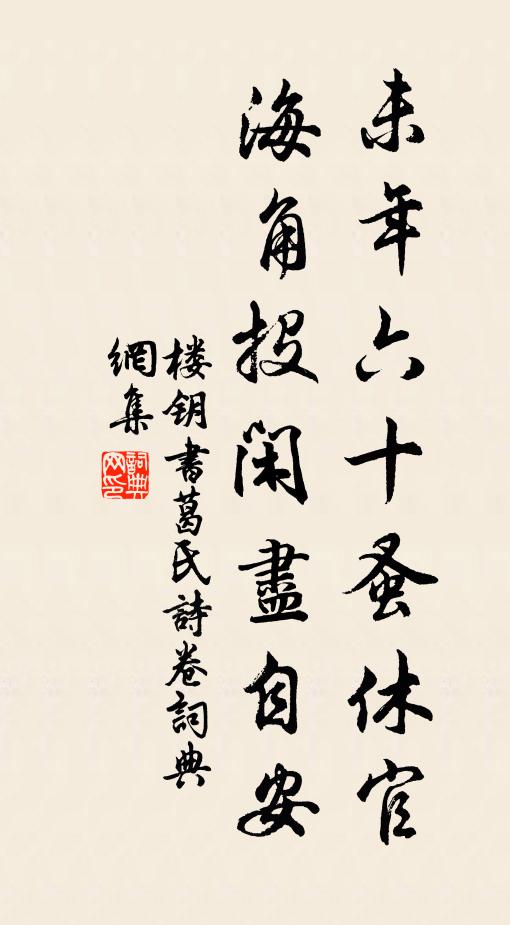 未年六十蚤休官
海角投閑盡自安
楼钥書葛氏詩卷詞典
網集
詞典
网印